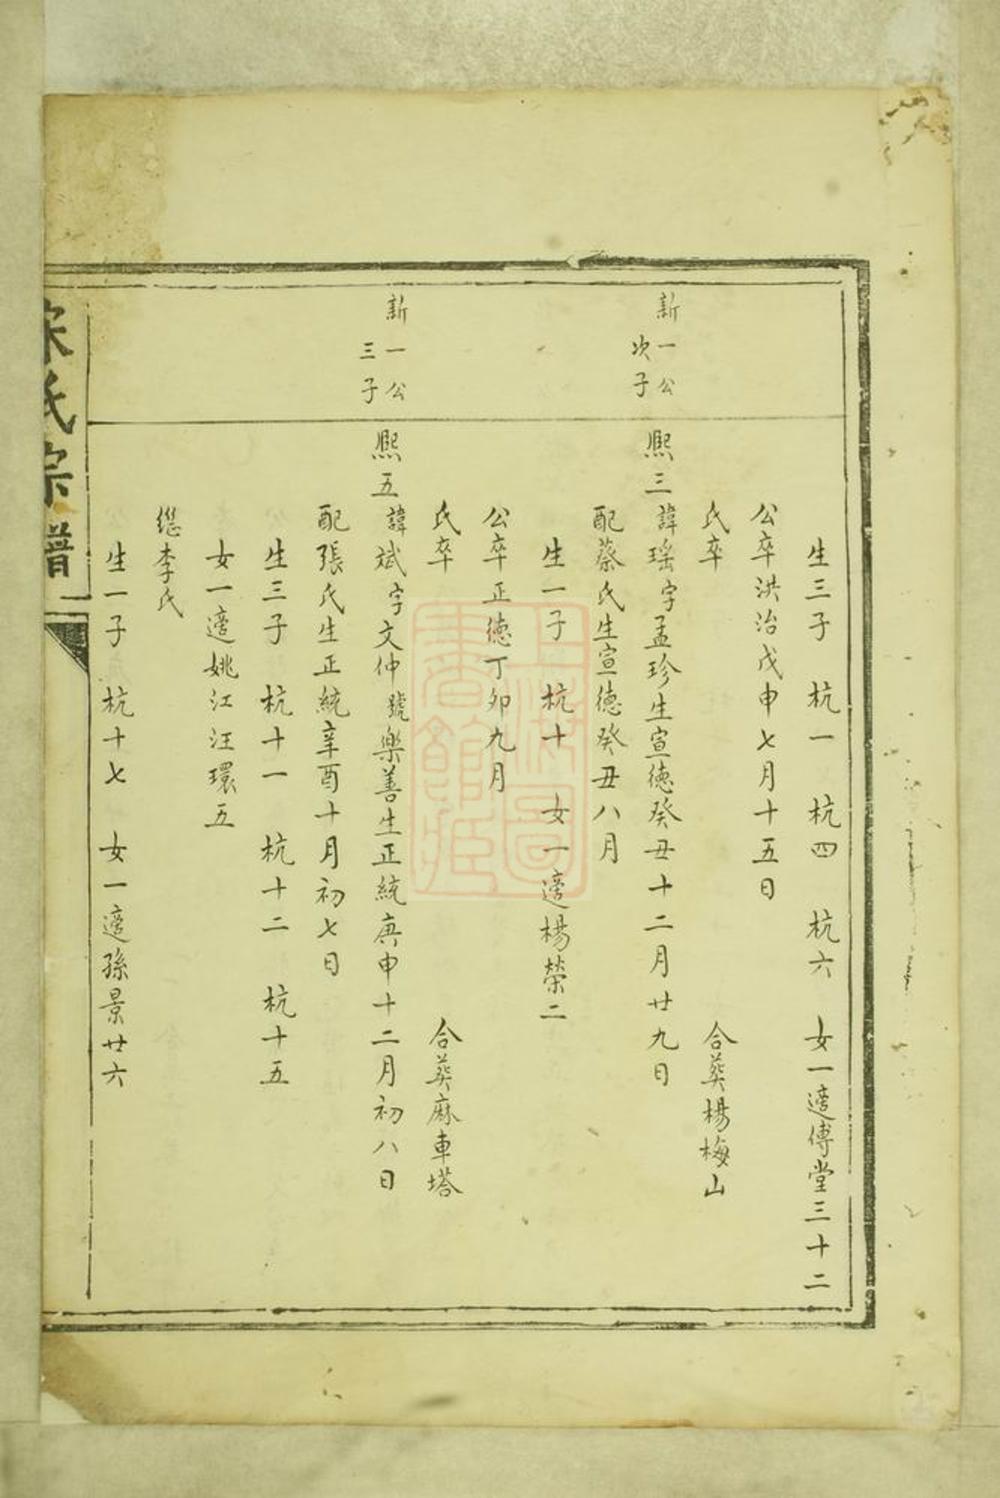 生三子 杭一 杭四 杭六 女一適傅堂三十二
公卒洪治戊申七月十五日
氏卒 合葬楊梅山
新一公
次子
熙三諱瑤字孟珍生宣德癸丑十二月廿九日
配蔡氏生宣德癸丑八月
生一子 杭十 女一適楊榮二
公卒正德丁卯九月
氏卒 合葬麻車塔
新一公
三子
熙五諱斌字文仲號樂善生正統庚申十二月初八日
配張氏生正統辛酉十月初七日
生三子 杭十一 杭十二 杭十五
女一適姚江汪環五
繼李氏
生一子 杭十七 女一適孫景廿六
氏宗譜
上海圖書館藏